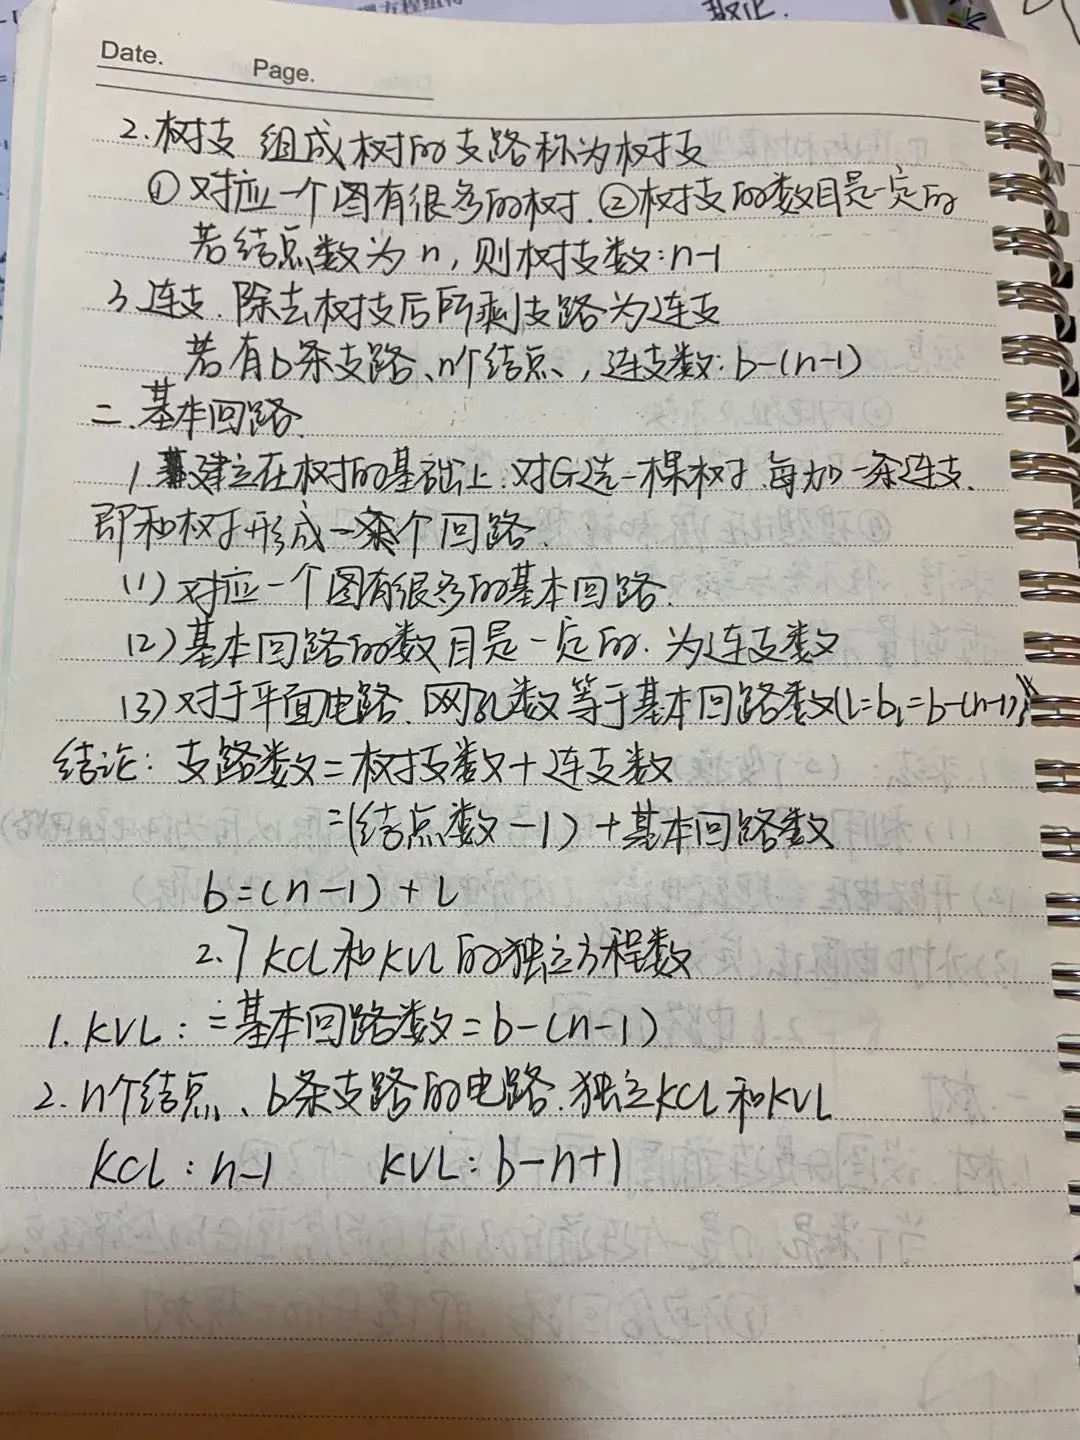 Date.
Page.
2.树支 组成树的支路称为树支
①对应一个图有很多的树.②树支的数目是一定的
若结点数为n,则树技数:n-1
3.连支.除去树技后所剩支路为连支
若有b条支路、n个结点、,连支数:b-(n-1)
二.基本回路.
1.建立在树的基础上.对G选一棵树.每加一条连支.
即和树形成一个回路.
(1)对应一个图有很多的基本回路.
(2)基本回路的数目是一定的.为连支数
(3)对于平面电路.网孔数等于基本回路数(L=bₗ=b-(n-1))
结论:支路数=树技数+连支数
=(结点数-1)+基本回路数
b=(n-1)+L
2.7 KCL和KVL的独立方程数
1.KVL:=基本回路数=b-(n-1)
2.n个结点、b条支路的电路.独立KCL和KVL
KCL:n-1 KVL:b-n+1